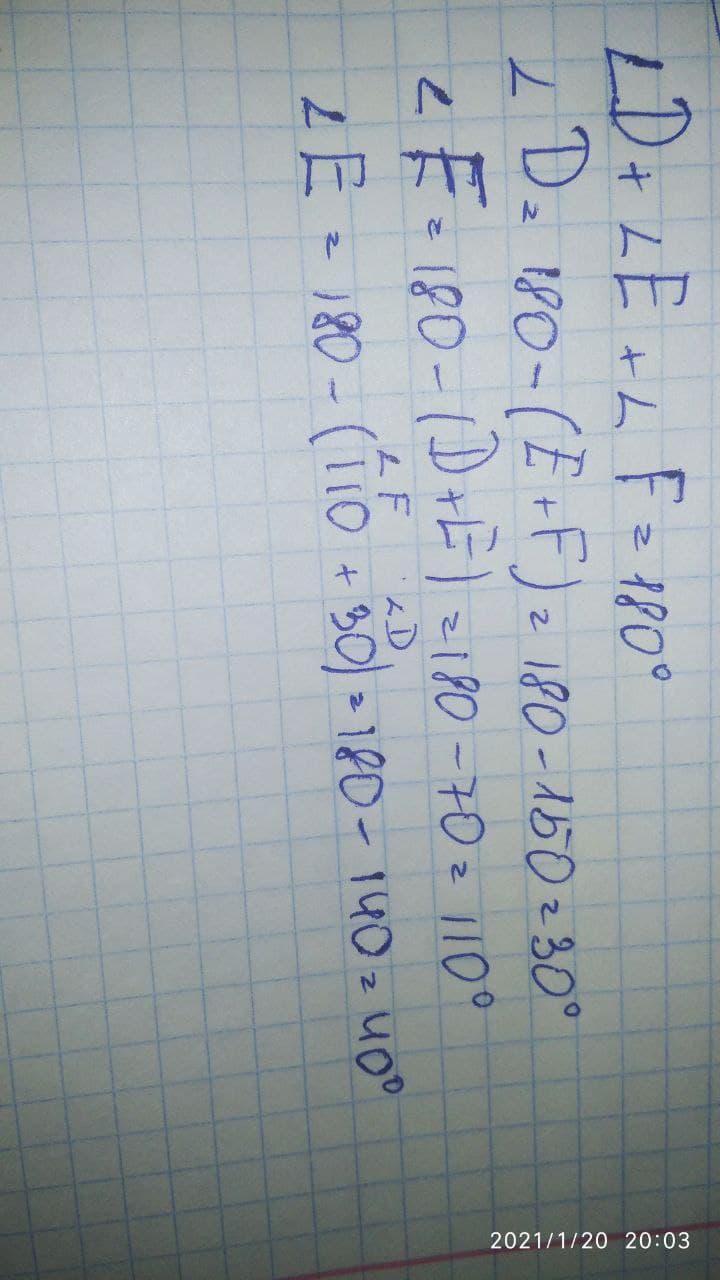 ∠D + ∠E + ∠F = 180°
∠D = 180 - (E + F) = 180 - 150 = 30°
∠F = 180 - (D + E) = 180 - 70 = 110°
∠F ∠D
∠E = 180 - (110 + 30) = 180 - 140 = 40°
2021/1/20 20:03